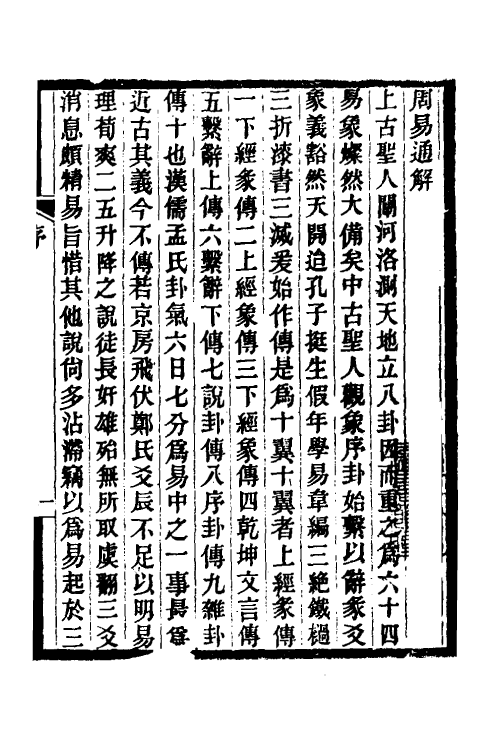 周易通解
上古聖人闡河洛測天地立八卦因而重之為六十四
易象燦然大備矣中古聖人觀象序卦始繫以辭彖爻
象義豁然天開迨孔子挺生假年學易韋編三絶鐵檛
三折漆書三滅爰始作傳是為十翼十翼者上經彖傳
一下經彖傳二上經象傳三下經象傳四乾坤文言傳
五繫辭上傳六繫辭下傳七說卦傳八序卦傳九雜卦
傳十也漢儒孟氏卦氣六日七分為易中之一事最為
近古其義今不傳若京房飛伏鄭氏爻辰不足以明易
理荀爽二五升降之說徒長奸雄殆無所取虞翻三爻
消息頗精易旨惜其他說尙多沾滯竊以為易起於三
序
一